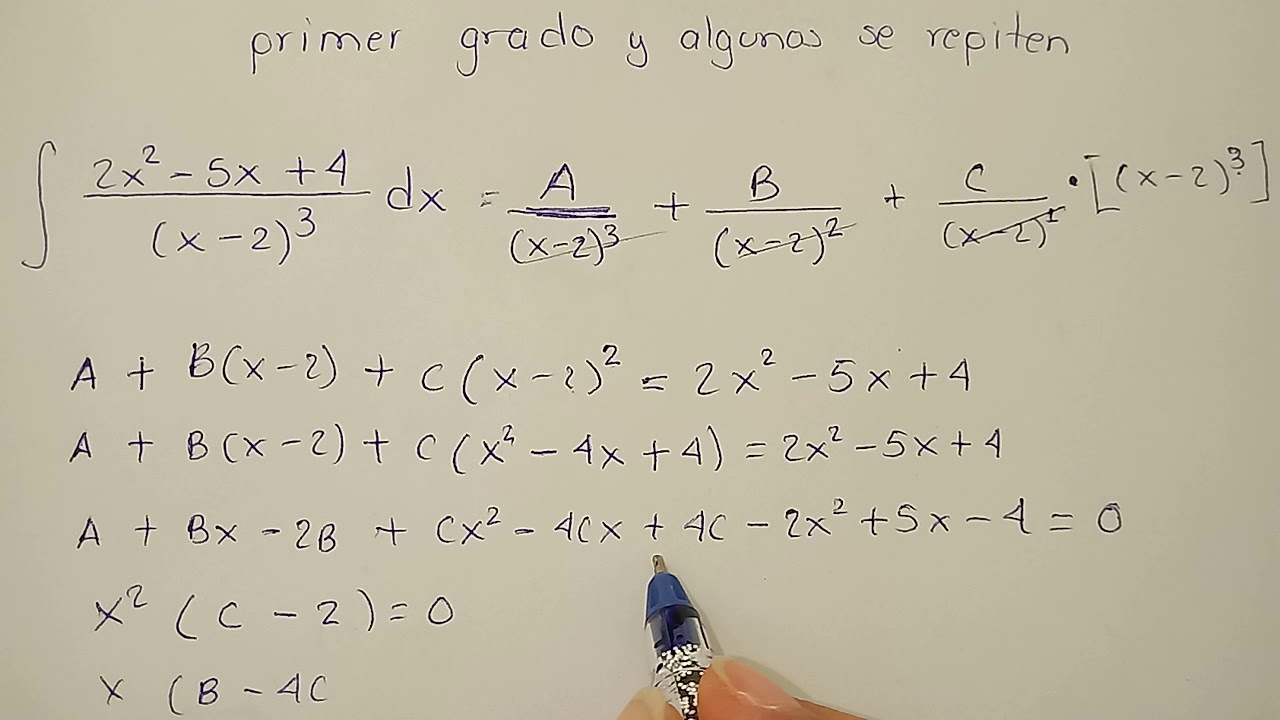 primer grado y algunas se repiten
∫ (2x² - 5x + 4)/(x - 2)³ dx = A/(x-2)³ + B/(x-2)² + C/(x-2)¹ · [(x-2)³]
A + B(x-2) + C(x-2)² = 2x² - 5x + 4
A + B(x-2) + C(x² - 4x + 4) = 2x² - 5x + 4
A + Bx - 2B + Cx² - 4Cx + 4C - 2x² + 5x - 4 = 0
x² (C - 2) = 0
x (B - 4C